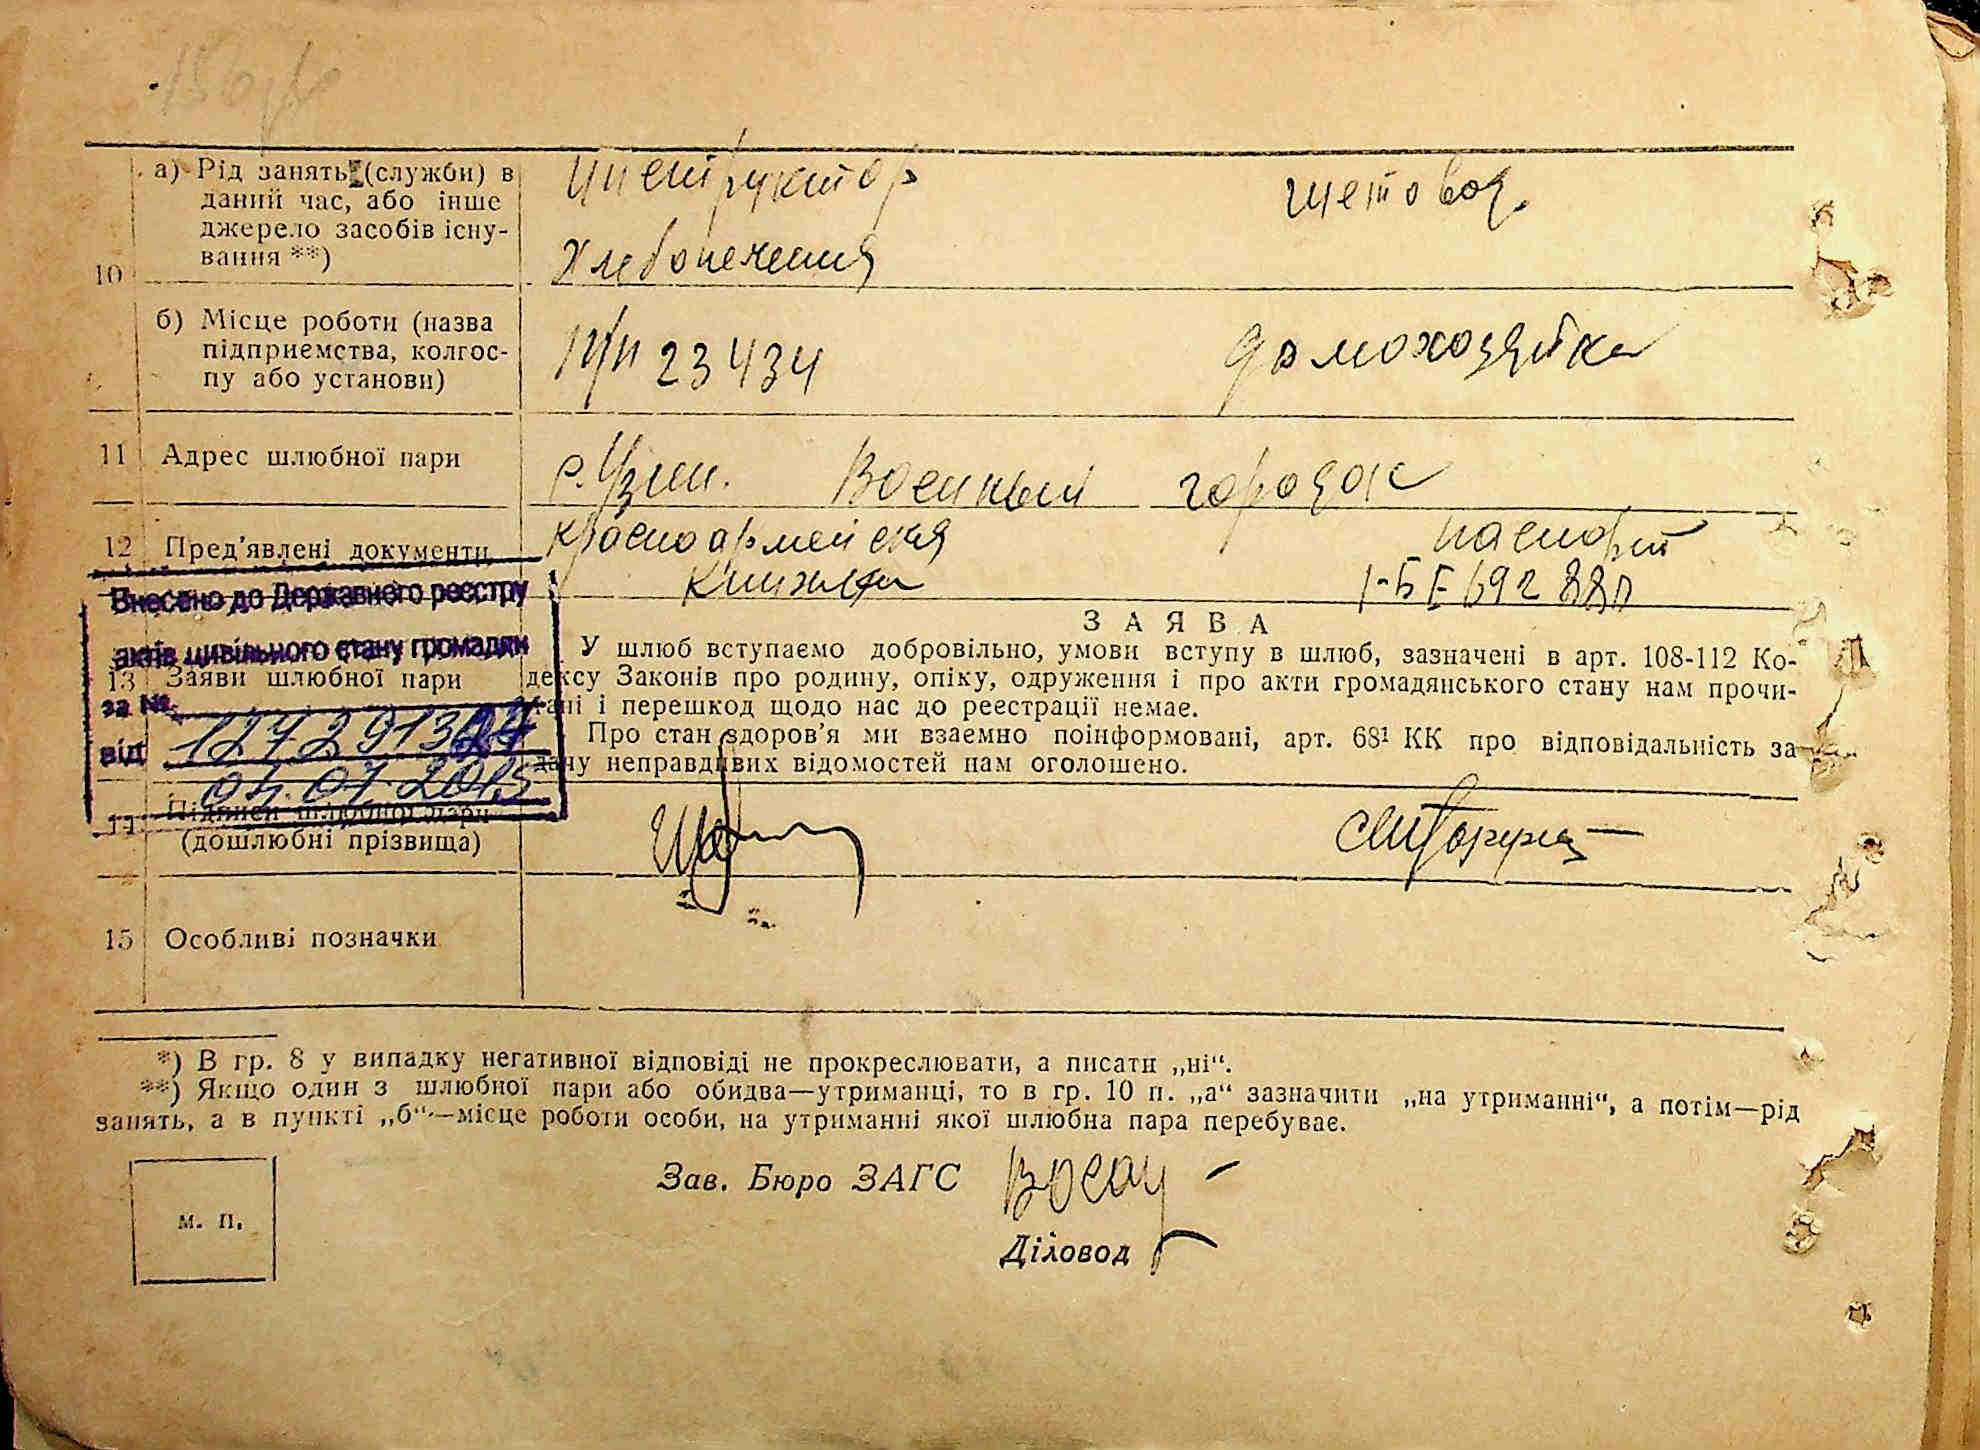 а) Рід занять (служби) в
даний час, або інше
джерело засобів існу-
вання **)
10
инструктор
хлебопечения
щетовод
б) Місце роботи (назва
підприємства, колгос-
пу або установи)
п/п 23434
домохозяйка
11 Адрес шлюбної пари
с. Узин. Военный городок
12 Пред'явлені документи
красноармейская
книжка
паспорт
Внесено до Державного реєстру
актів цивільного стану громадян
за №
від
04.07.2015
13 Заяви шлюбної пари
ЗАЯВА
У шлюб вступаємо добровільно, умови вступу в шлюб, зазначені в арт. 108-112 Ко-
дексу Законів про родину, опіку, одруження і про акти громадянського стану нам прочи-
тані і перешкод щодо нас до реєстрації немає.
Про стан здоров'я ми взаємно поінформовані, арт. 68¹ КК про відповідальність за
дачу неправдивих відомостей нам оголошено.
14 Підписи шлюбної пари
(дошлюбні прізвища)
15 Особливі позначки
*) В гр. 8 у випадку негативної відповіді не прокреслювати, а писати „ні“.
**) Якщо один з шлюбної пари або обидва—утриманці, то в гр. 10 п. „а“ зазначити „на утриманні“, а потім—рід
занять, а в пункті „б“—місце роботи особи, на утриманні якої шлюбна пара перебуває.
Зав. Бюро ЗАГС
м. п.
Діловод